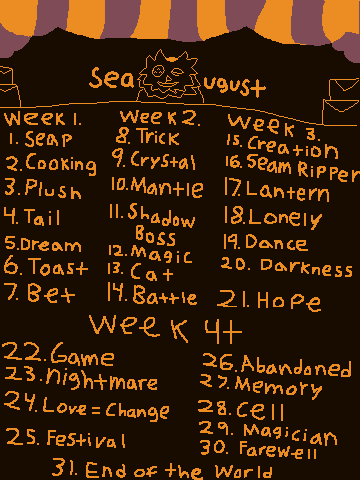 Sea ugust
Week 1.
1. Seap
2. Cooking
3. Plush
4. Tail
5. Dream
6. Toast
7. Bet
Week 2.
8. Trick
9. Crystal
10. Mantle
11. Shadow
Boss
12. Magic
13. Cat
14. Battle
Week 3.
15. Creation
16. Seam Ripper
17. Lantern
18. Lonely
19. Dance
20. Darkness
21. Hope
Week 4+
22. Game
23. Nightmare
24. Love = Change
25. Festival
26. Abandoned
27. Memory
28. Cell
29. Magician
30. Farewell
31. End of the World